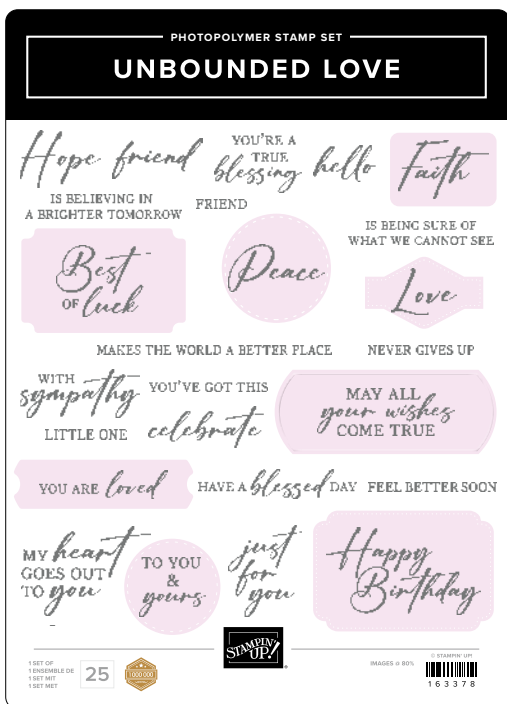 PHOTOPOLYMER STAMP SET
UNBOUNDED LOVE
Hope
friend
YOU'RE A
TRUE
blessing
hello
Faith
IS BELIEVING IN
A BRIGHTER TOMORROW
FRIEND
IS BEING SURE OF
WHAT WE CANNOT SEE
Best
OF luck
Peace
Love
MAKES THE WORLD A BETTER PLACE
NEVER GIVES UP
WITH
sympathy
YOU'VE GOT THIS
LITTLE ONE
celebrate
MAY ALL
your wishes
COME TRUE
YOU ARE loved
HAVE A blessed DAY
FEEL BETTER SOON
MY heart
GOES OUT
TO you
TO YOU
&
yours
just
for
you
Happy
Birthday
STAMPIN' UP!
1 SET OF
1 ENSEMBLE DE
1 SET MIT
1 SET MET
25
1 000 000
IMAGES @ 80%
© STAMPIN' UP!
163378